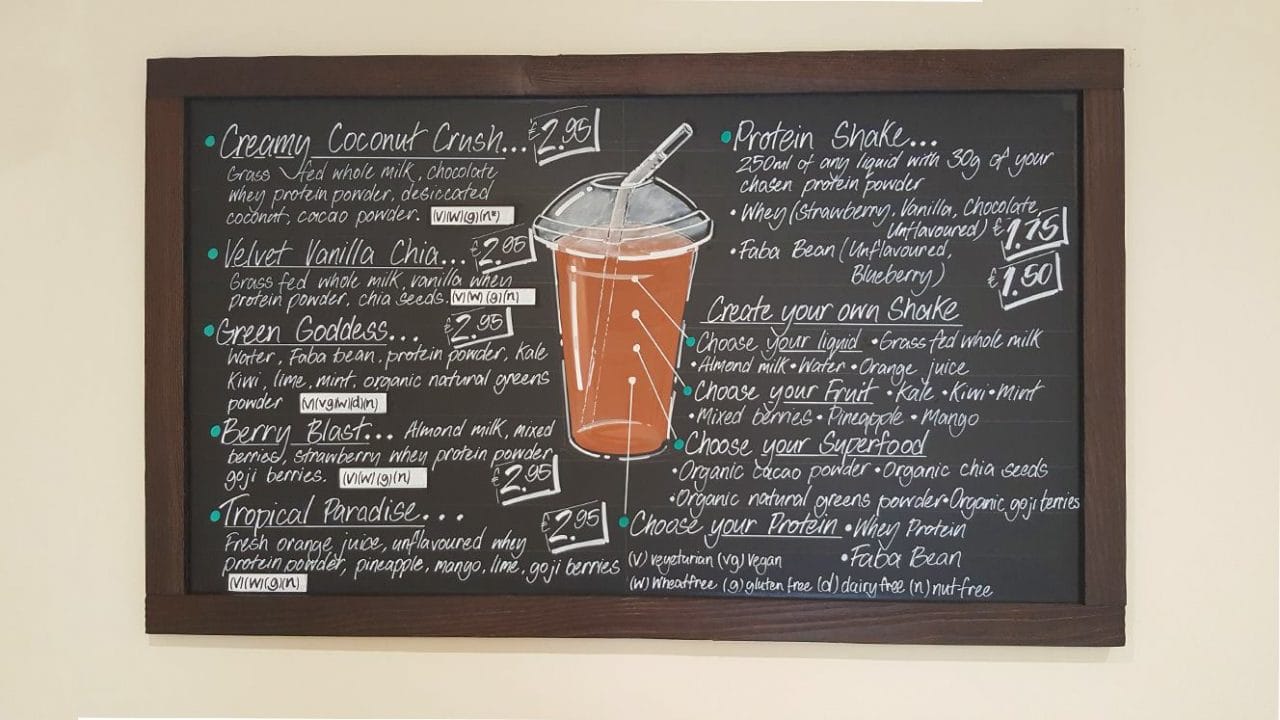 Creamy Coconut Crush... £2.95
Grass fed whole milk, chocolate
whey protein powder, desiccated
coconut, cacao powder. (V)(W)(g)(n*)
Velvet Vanilla Chia... £2.95
Grass fed whole milk, vanilla whey
protein powder, chia seeds. (V)(W)(g)(n)
Green Goddess... £2.95
Water, Faba bean, protein powder, Kale
Kiwi, lime, mint, organic natural greens
powder (V)(vg)(w)(d)(n)
Berry Blast... Almond milk, mixed
berries, strawberry whey protein powder
goji berries. (V)(W)(g)(n) £2.95
Tropical Paradise... £2.95
Fresh orange juice, unflavoured whey
protein powder, pineapple, mango, lime, goji berries
(V)(W)(g)(n)
Protein Shake...
250ml of any liquid with 30g of your
chosen protein powder
• Whey (Strawberry, Vanilla, Chocolate,
Unflavoured) £1.75
• Faba Bean (Unflavoured,
Blueberry) £1.50
Create your own Shake
Choose your liquid • Grass fed whole milk
• Almond milk • Water • Orange juice
Choose your Fruit • Kale • Kiwi • Mint
• Mixed berries • Pineapple • Mango
Choose your Superfood
• Organic cacao powder • Organic chia seeds
• Organic natural greens powder • Organic goji berries
Choose your Protein • Whey Protein
• Faba Bean
(V) vegetarian (vg) Vegan
(w) Wheatfree (g) gluten free (d) dairy free (n) nut free